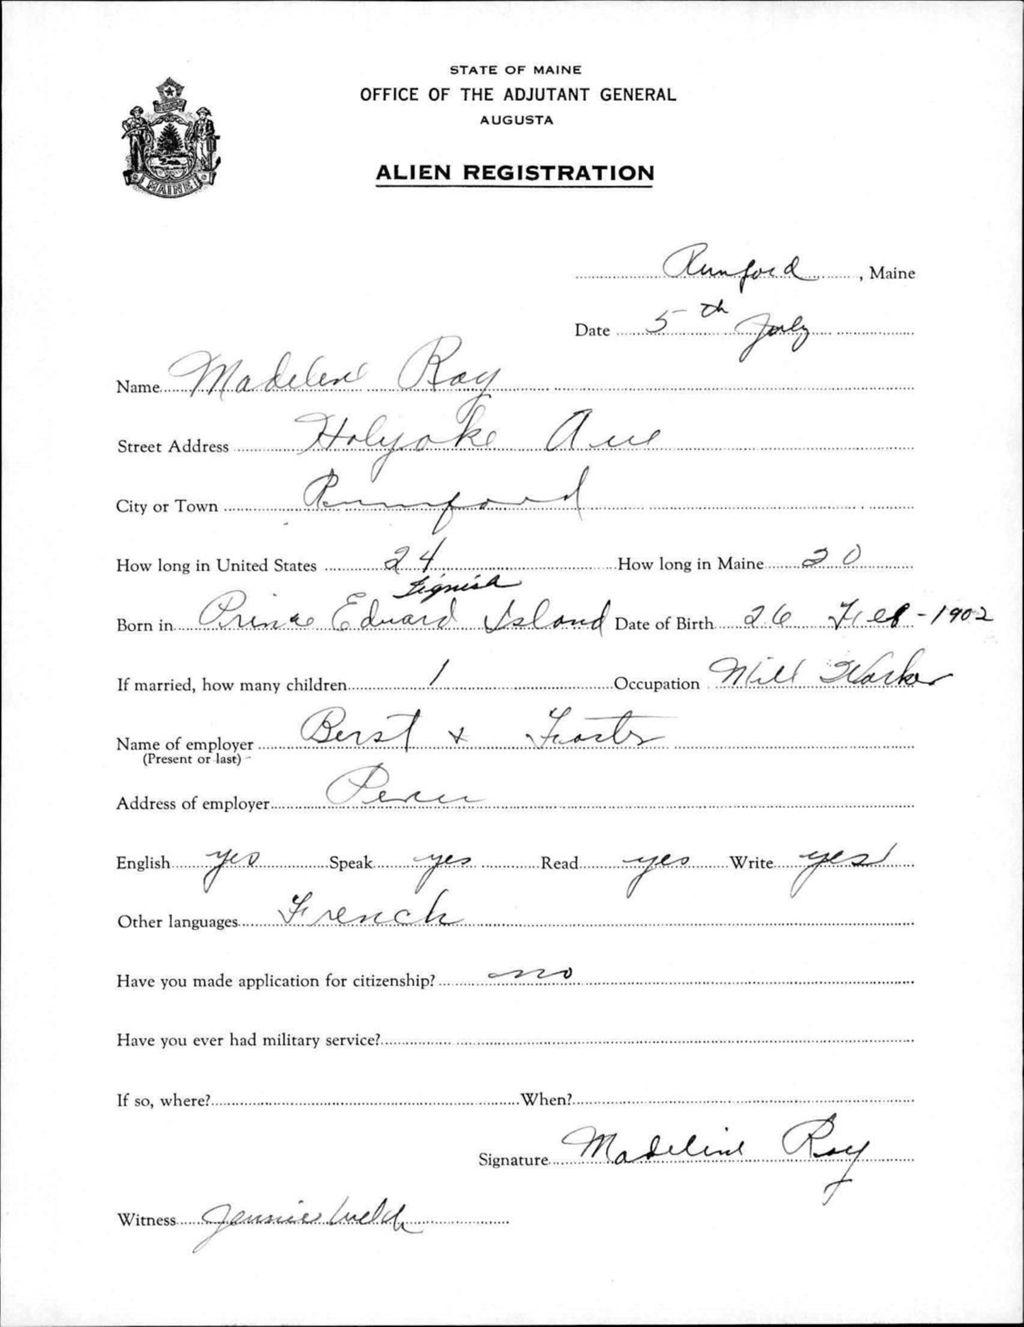 STATE OF MAINE
OFFICE OF THE ADJUTANT GENERAL
AUGUSTA
MAINE
ALIEN REGISTRATION
Rumford, Maine
Date 5th July
Name Madeline Roy
Street Address Holyoke Ave
City or Town Rumford
How long in United States 24 How long in Maine 20
Tignish
Born in Prince Edward Island Date of Birth 26 Feb - 1902
If married, how many children 1 Occupation Mill Worker
Name of employer Berst & Foster
(Present or last)
Address of employer Peru
English yes Speak yes Read yes Write yes
Other languages French
Have you made application for citizenship? no
Have you ever had military service?
If so, where? When?
Signature Madeline Roy
Witness Jennie Welch